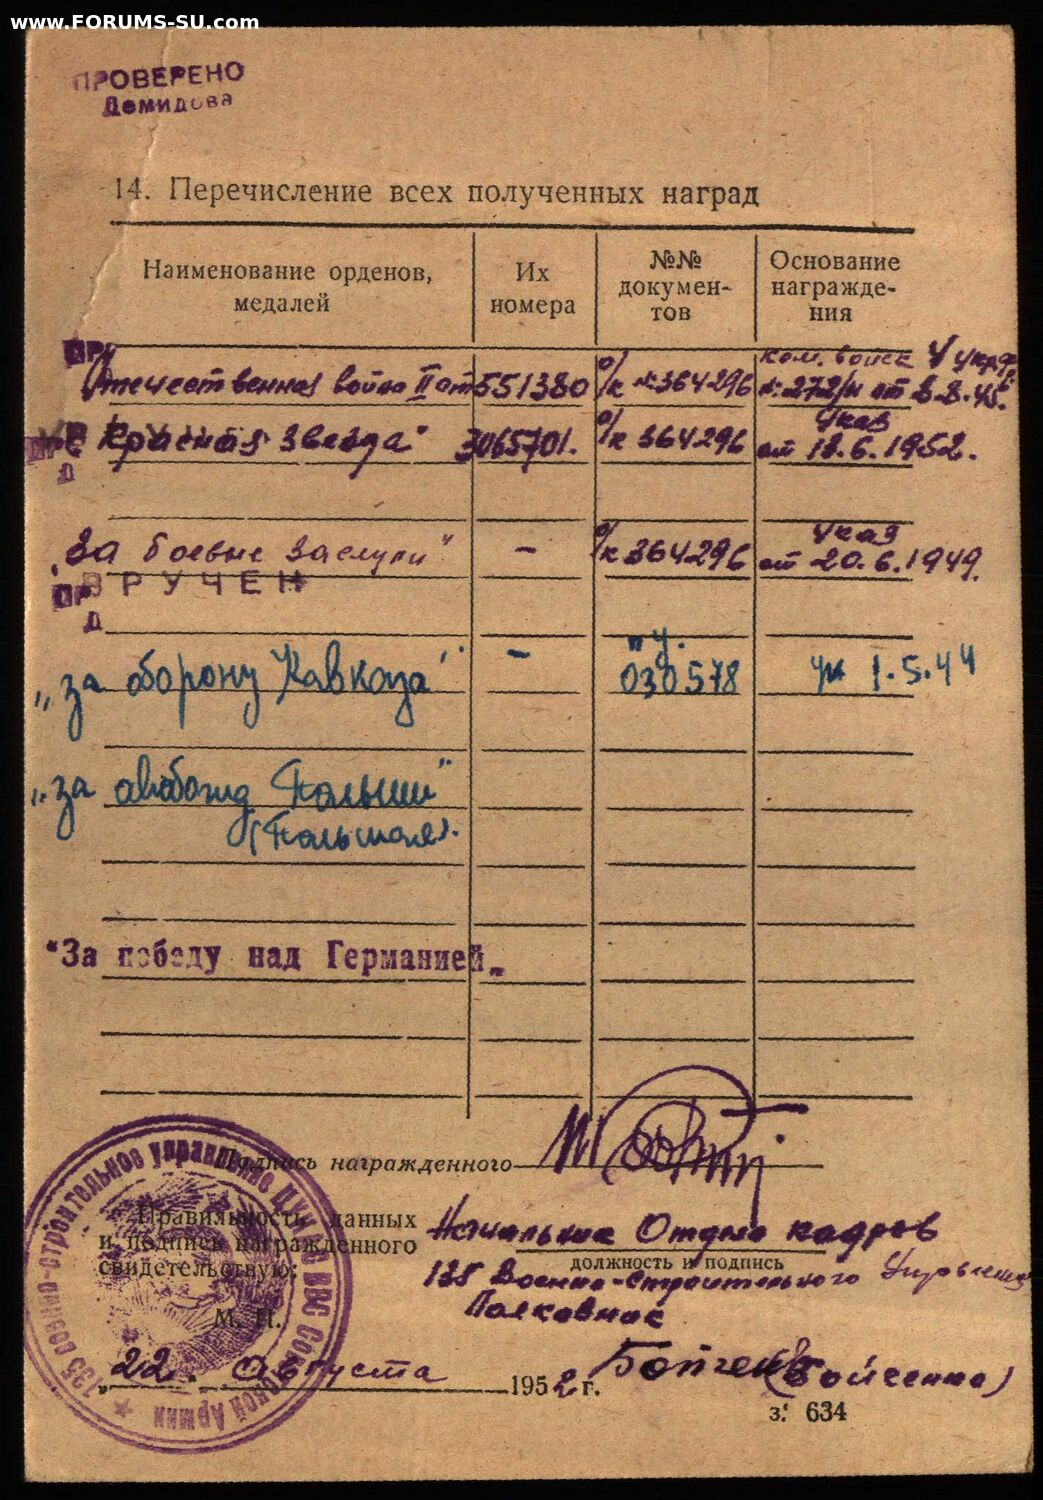 www.FORUMS-SU.com
ПРОВЕРЕНО
Демидова
14. Перечисление всех полученных наград
Наименование орденов, медалей
Их номера
№№ документов
Основание награждения
Отечественная война II ст 551380 о/к №364296 ком. войск 4 Укр.фр. №:272/н от 8.8.45.
"Красная звезда" 3065701. о/к 364296 Указ от 18.6.1952.
"За боевые заслуги" - о/к 364296 Указ от 20.6.1949.
ВРУЧЕН
"за оборону Кавказа" - "у. 030578 ук 1.5.44
"за свобод Польши"
(Польская).
"За победу над Германией"
Подпись награжденного
Правильность данных
и подпись награжденного
свидетельствую:
М. П.
Начальник Отдела кадров
должность и подпись
135 Военно-Строительного Управления
Полковник
Бойченко (Бойченко)
"22" Августа 1952 г.
з. 634
135 военно-строительное управление ВВС Советской Армии